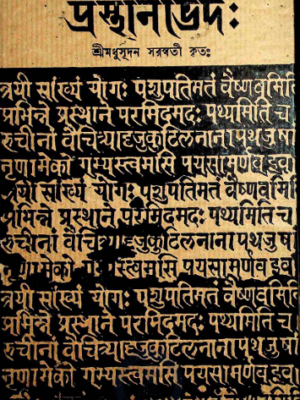 প্রস্থানভেদঃ
শ্রীমধুসূদন সরস্বতী কৃতঃ
त्रयी सांख्यं योगः पशुपतिमतं वैष्णवमिति
प्रभिन्ने प्रस्थाने परमिदमदः पथ्यमिति च
रुचीनां वैचित्र्यादृजुकुटिलनानापथजुषां
नृणामेको गम्यस्त्वमसि पयसामर्णव इव
त्रयी सांख्यं योगः पशुपतिमतं वैष्णवमिति
प्रभिन्ने प्रस्थाने परमिदमदः पथ्यमिति च
रुचीनां वैचित्र्यादृजुकुटिलनानापथजुषां
नृणामेको गम्यस्त्वमसि पयसामर्णव इव
त्रयी सांख्यं योगः पशुपतिमतं वैष्णवमिति
प्रभिन्ने प्रस्थाने परमिदमदः पथ्यमिति च
रुचीनां वैचित्र्यादृजुकुटिलनानापथजुषां
नृणामेको गम्यस्त्वमसि पयसामर्णव इव